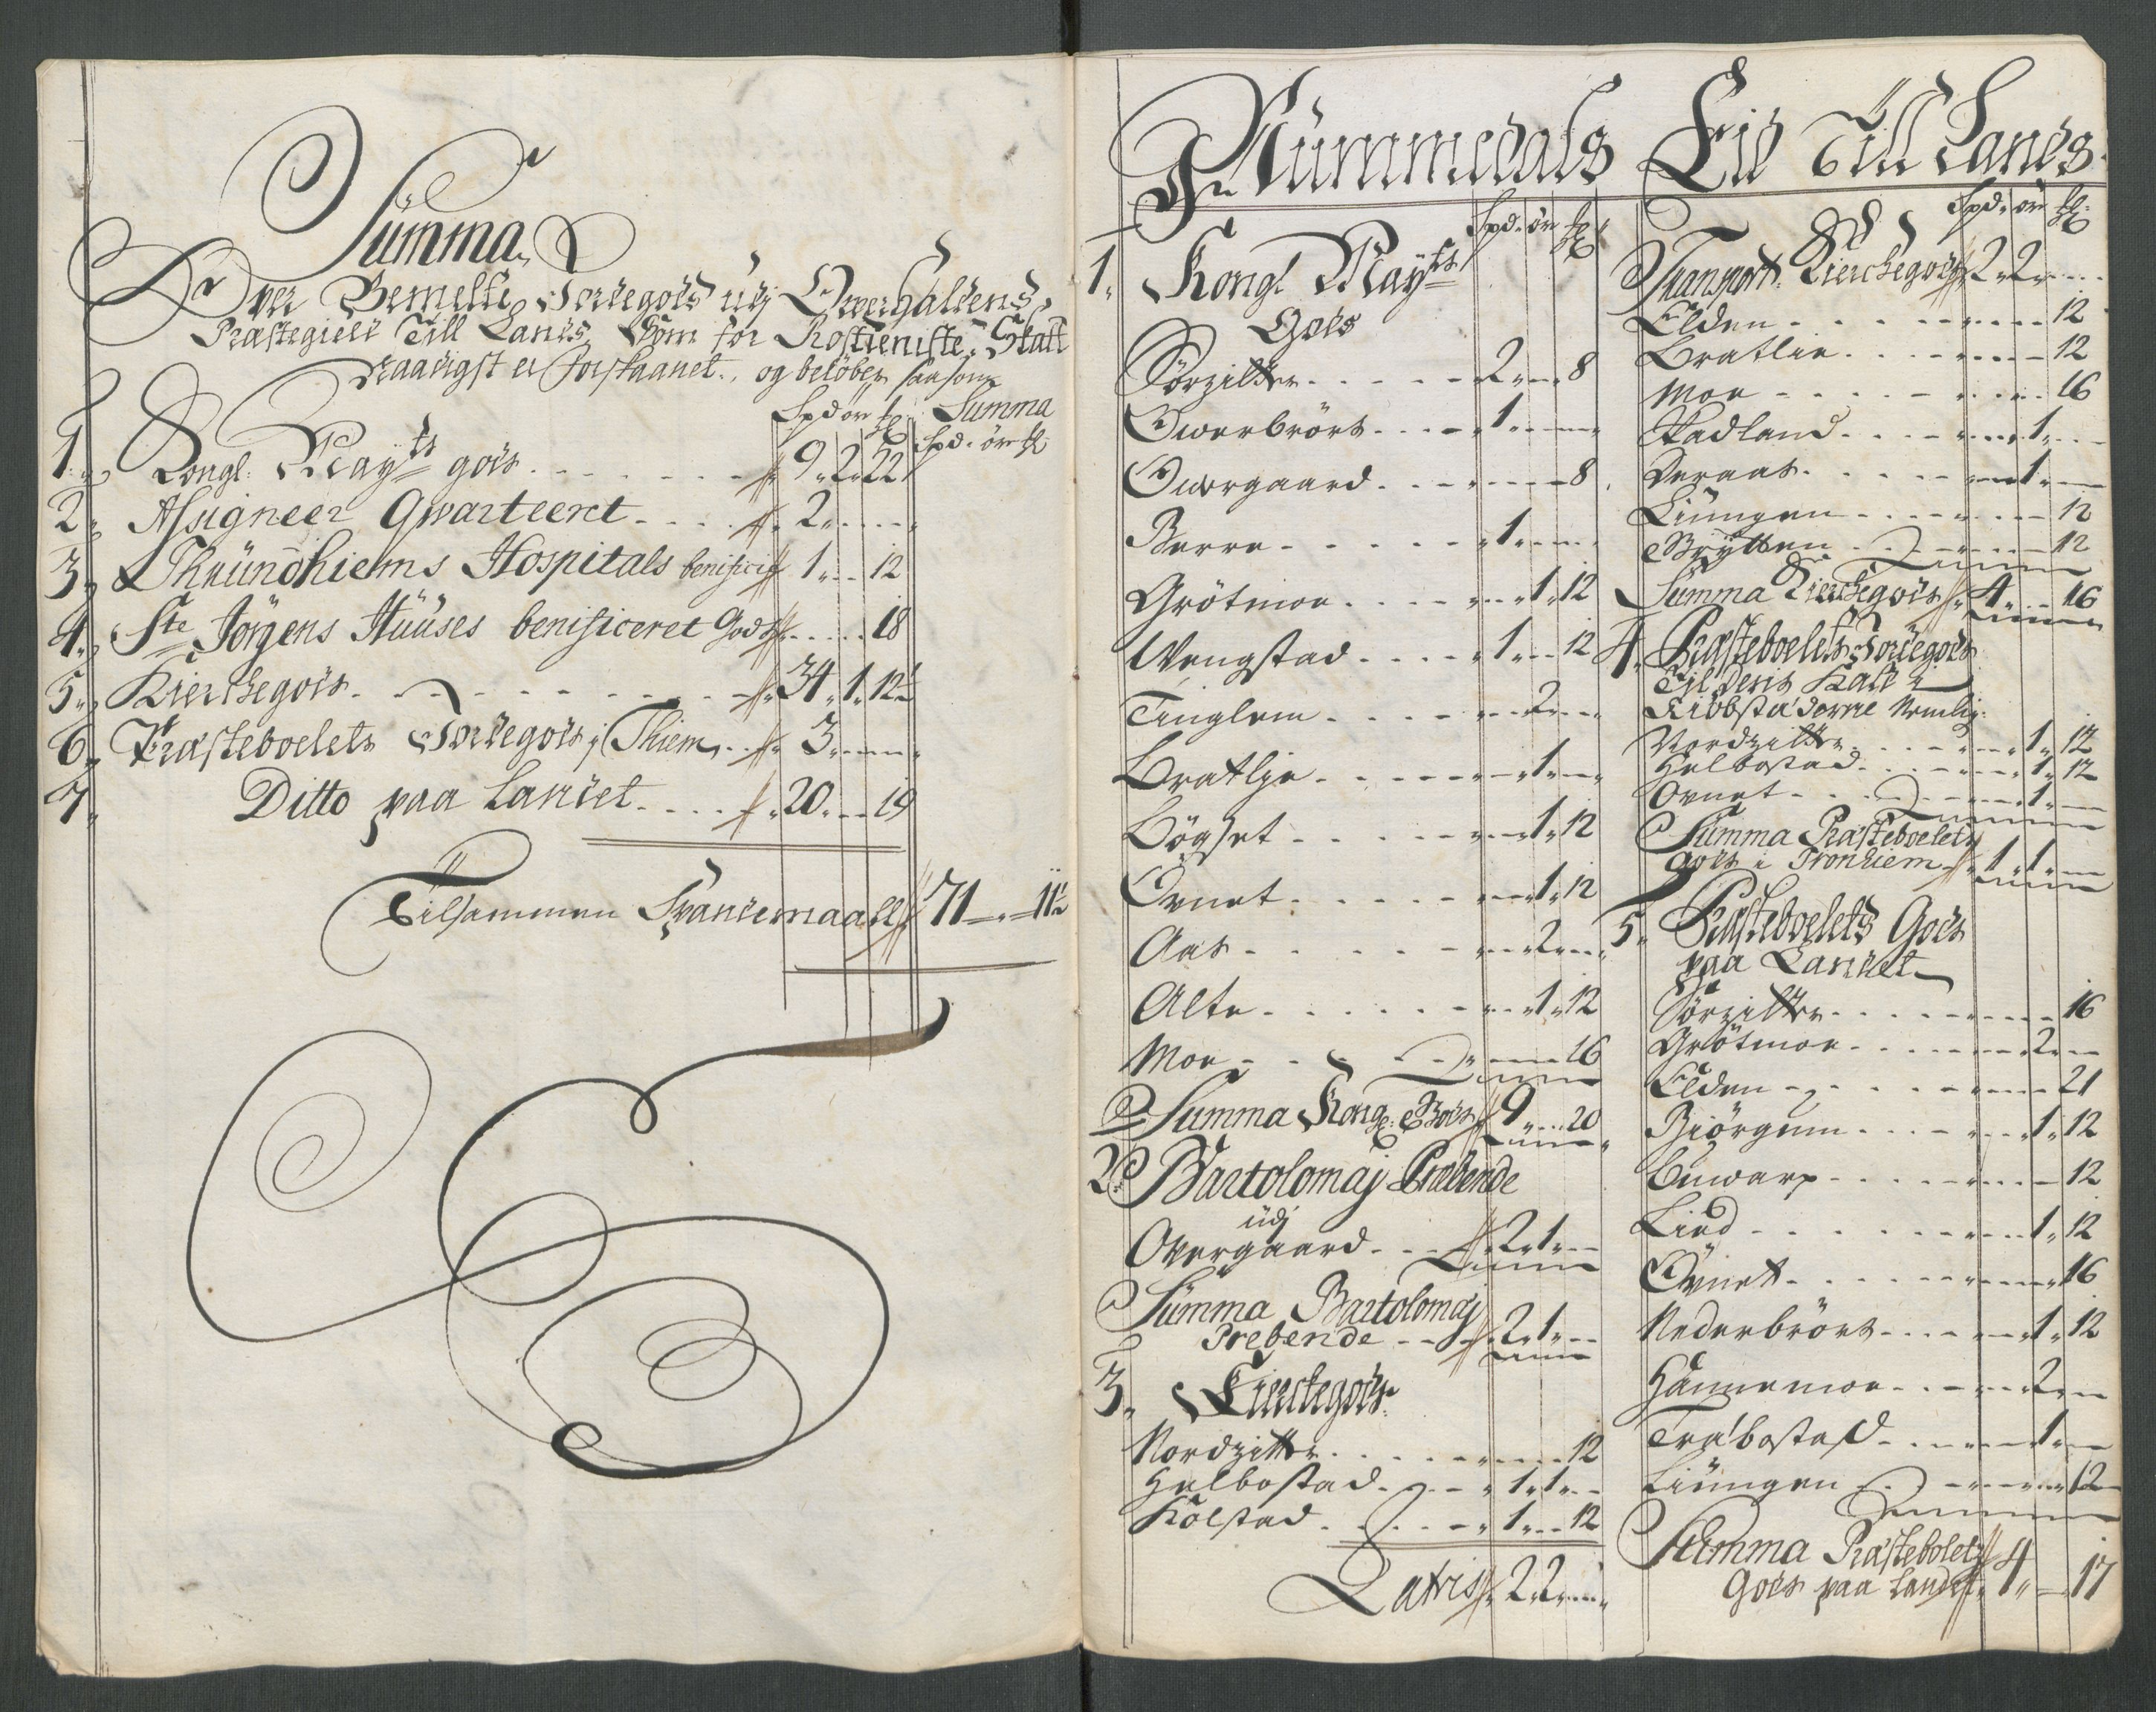 Summa
Over Bemelte Jordegods udj Owerhaldens
Præstegield Till Lands, Som for Rostieniste Skatt
Naadigst er forskaanet, og beløber saasom
Spd ör ₰ Summa
Spd. ör ₰
1. Kongl: Mayts gods 9 2 22
2 Assigneer Qvarteret 2
3 Thrundhiems Hospitals benificij 1 12
4. Ste Jörgens Huuses benificeret Gods 18
5 Kierckegods 34 1 12½
6 Præsteboelets Jordegods j Thiem 3
7 Ditto paa Landet 20 19
Tilsammen Spandemaall 71 11½
Nummedals Eid Till Lands.
Spd. ör ₰
1. Kongl Mayts
Gods
Sörzitter 2 8
Owerbrörs 1
Owergaard 8
Berre 1
Grötmoe 1 12
Wengstad 1 12
Tinglem 2
Bratlje 1
Bögset 1 12
Övnet 1 12
Aas 2
Alte 1 12
Moe 16
Summa Kong: Gods 9 20
2. Bartolomaj Præbende
udj
Overgaard 2 1
Summa Bartolomaj
Prebende 2 1
3. Kierckegods
Nordzitter 12
Helbostad 1 1
Kolstad 1 12
Latris 2 2
Spd. ör ₰
Transport Kierckegods 2 2
Elden 12
Bratlie 12
Moe 16
Stadland 1
Deraas 1
Liungen 12
Brytten 12
Summa Kierckegods 4 16
4. Præsteboelets Jordegods
Til Dens Kald i
Kiøbstaderne Nemlig
Nordzitter 1 12
Helbostad 1 12
Övnet 1
Summa Præsteboelets
gods i Tronhiem 1 1
5. Præsteboelets Gods
paa Landet
Sörzitter 16
Grötmoe 2
Elden 21
Biörgum 1 12
12
Lied 1 12
Övnet 16
Nederbrörs 1 12
Hammemoe 2
Træbostad 1
Liungen 12
Summa Præstebolets
Gods paa Landet 4 17